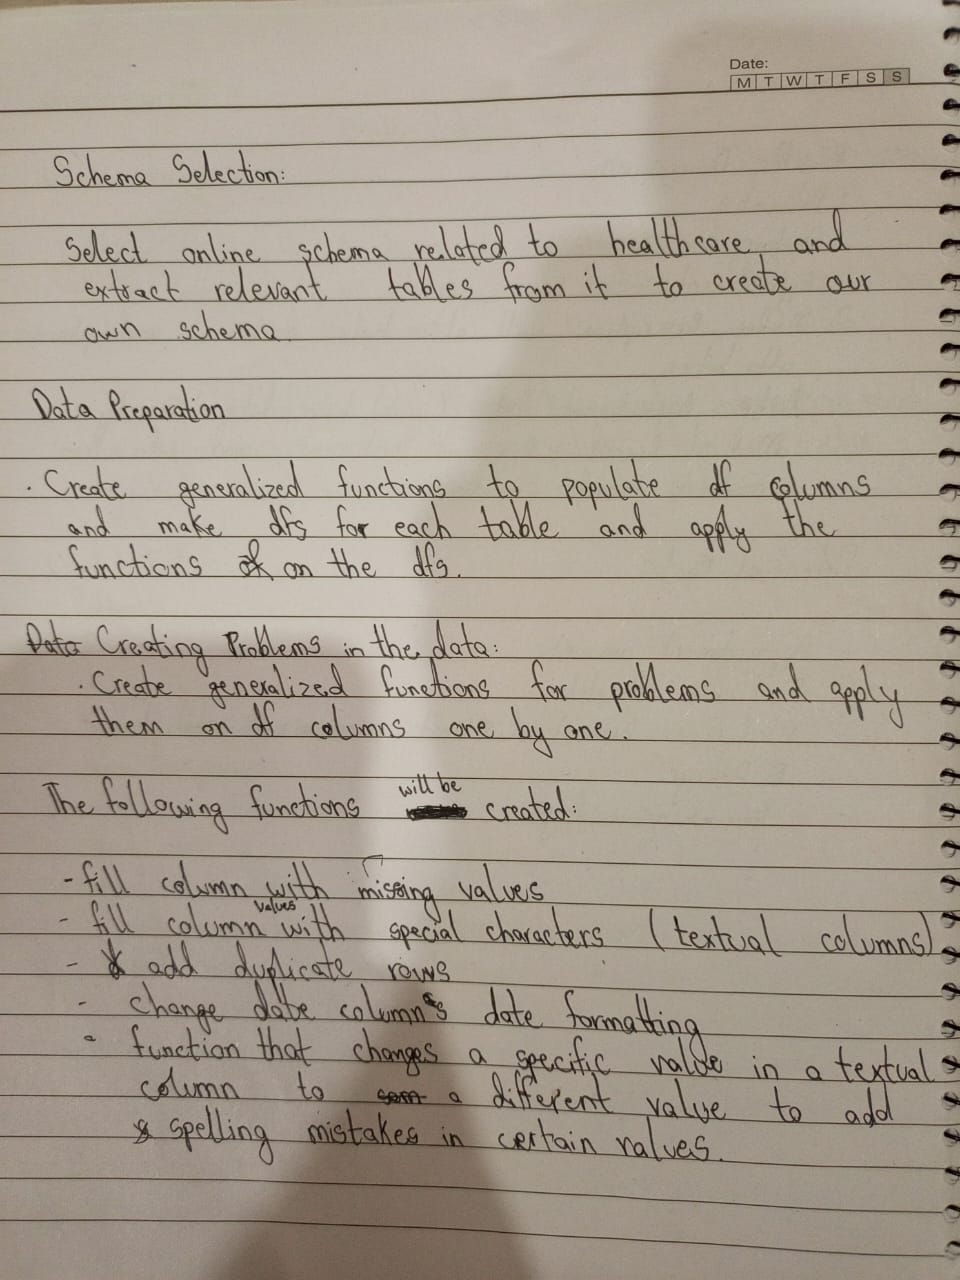 Date:
M T W T F S S
Schema Selection:
Select online schema related to healthcare and
extract relevant tables from it to create our
own schema
Data Preparation
. Create generalized functions to populate df columns
and make dfs for each table and apply the
functions on the dfs.
Data Creating Problems in the data:
. Create generalized functions for problems and apply
them on df columns one by one.
The following functions will be created:
- fill column with missing values
- fill column values with special characters (textual columns)
- add duplicate rows
- change date column's date formatting
- function that changes a specific value in a textual
column to a different value to add
spelling mistakes in certain values.